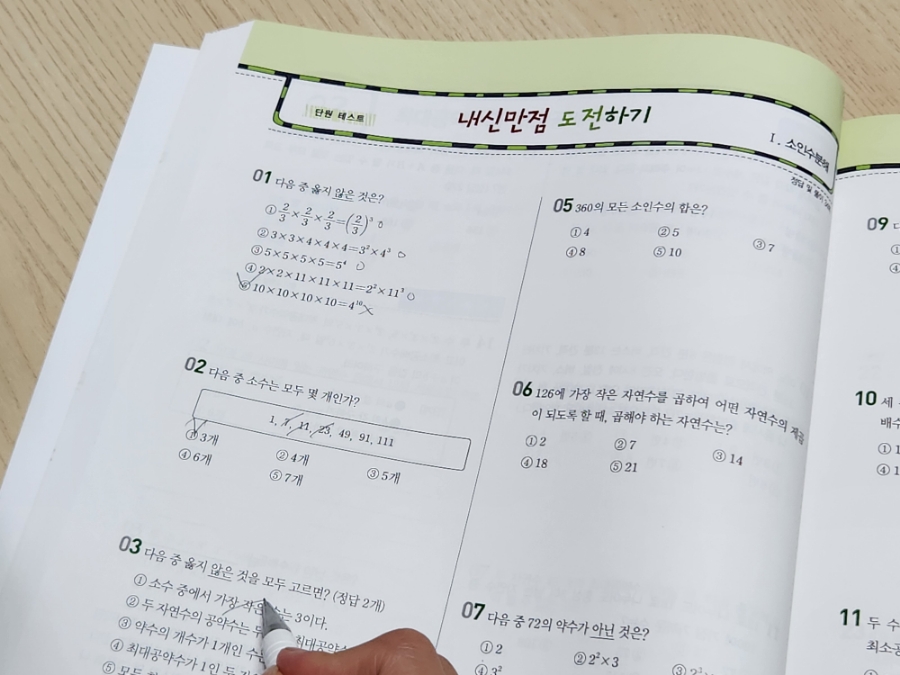 단원 테스트
내신만점 도전하기
Ⅰ. 소인수분해
정답 및 풀이
01 다음 중 옳지 않은 것은?
① 2/3 × 2/3 × 2/3 = (2/3)³ ○
② 3×3×4×4×4=3²×4³ ○
③ 5×5×5×5=5⁴ ○
④ 2×2×11×11×11=2²×11³ ○
⑤ 10×10×10×10=4¹⁰ ×
02 다음 중 소수는 모두 몇 개인가?
1, 7, 11, 23, 49, 91, 111
① 3개 ② 4개 ③ 5개
④ 6개 ⑤ 7개
03 다음 중 옳지 않은 것을 모두 고르면? (정답 2개)
① 소수 중에서 가장 작은 수는 3이다.
② 두 자연수의 공약수는 두 최대공약수
③ 약수의 개수가 1개인 수는
④ 최대공약수가 1인 두
⑤ 모든
05 360의 모든 소인수의 합은?
① 4 ② 5 ③ 7
④ 8 ⑤ 10
06 126에 가장 작은 자연수를 곱하여 어떤 자연수의 제곱
이 되도록 할 때, 곱해야 하는 자연수는?
① 2 ② 7 ③ 14
④ 18 ⑤ 21
07 다음 중 72의 약수가 아닌 것은?
① 2 ② 2²×3 ③
④ 3²
09
①
④
10 세
배수
① 1
④ 1
11 두 수
최소공
①